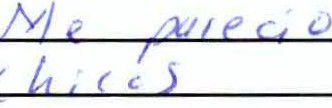 Me parecio
chicos